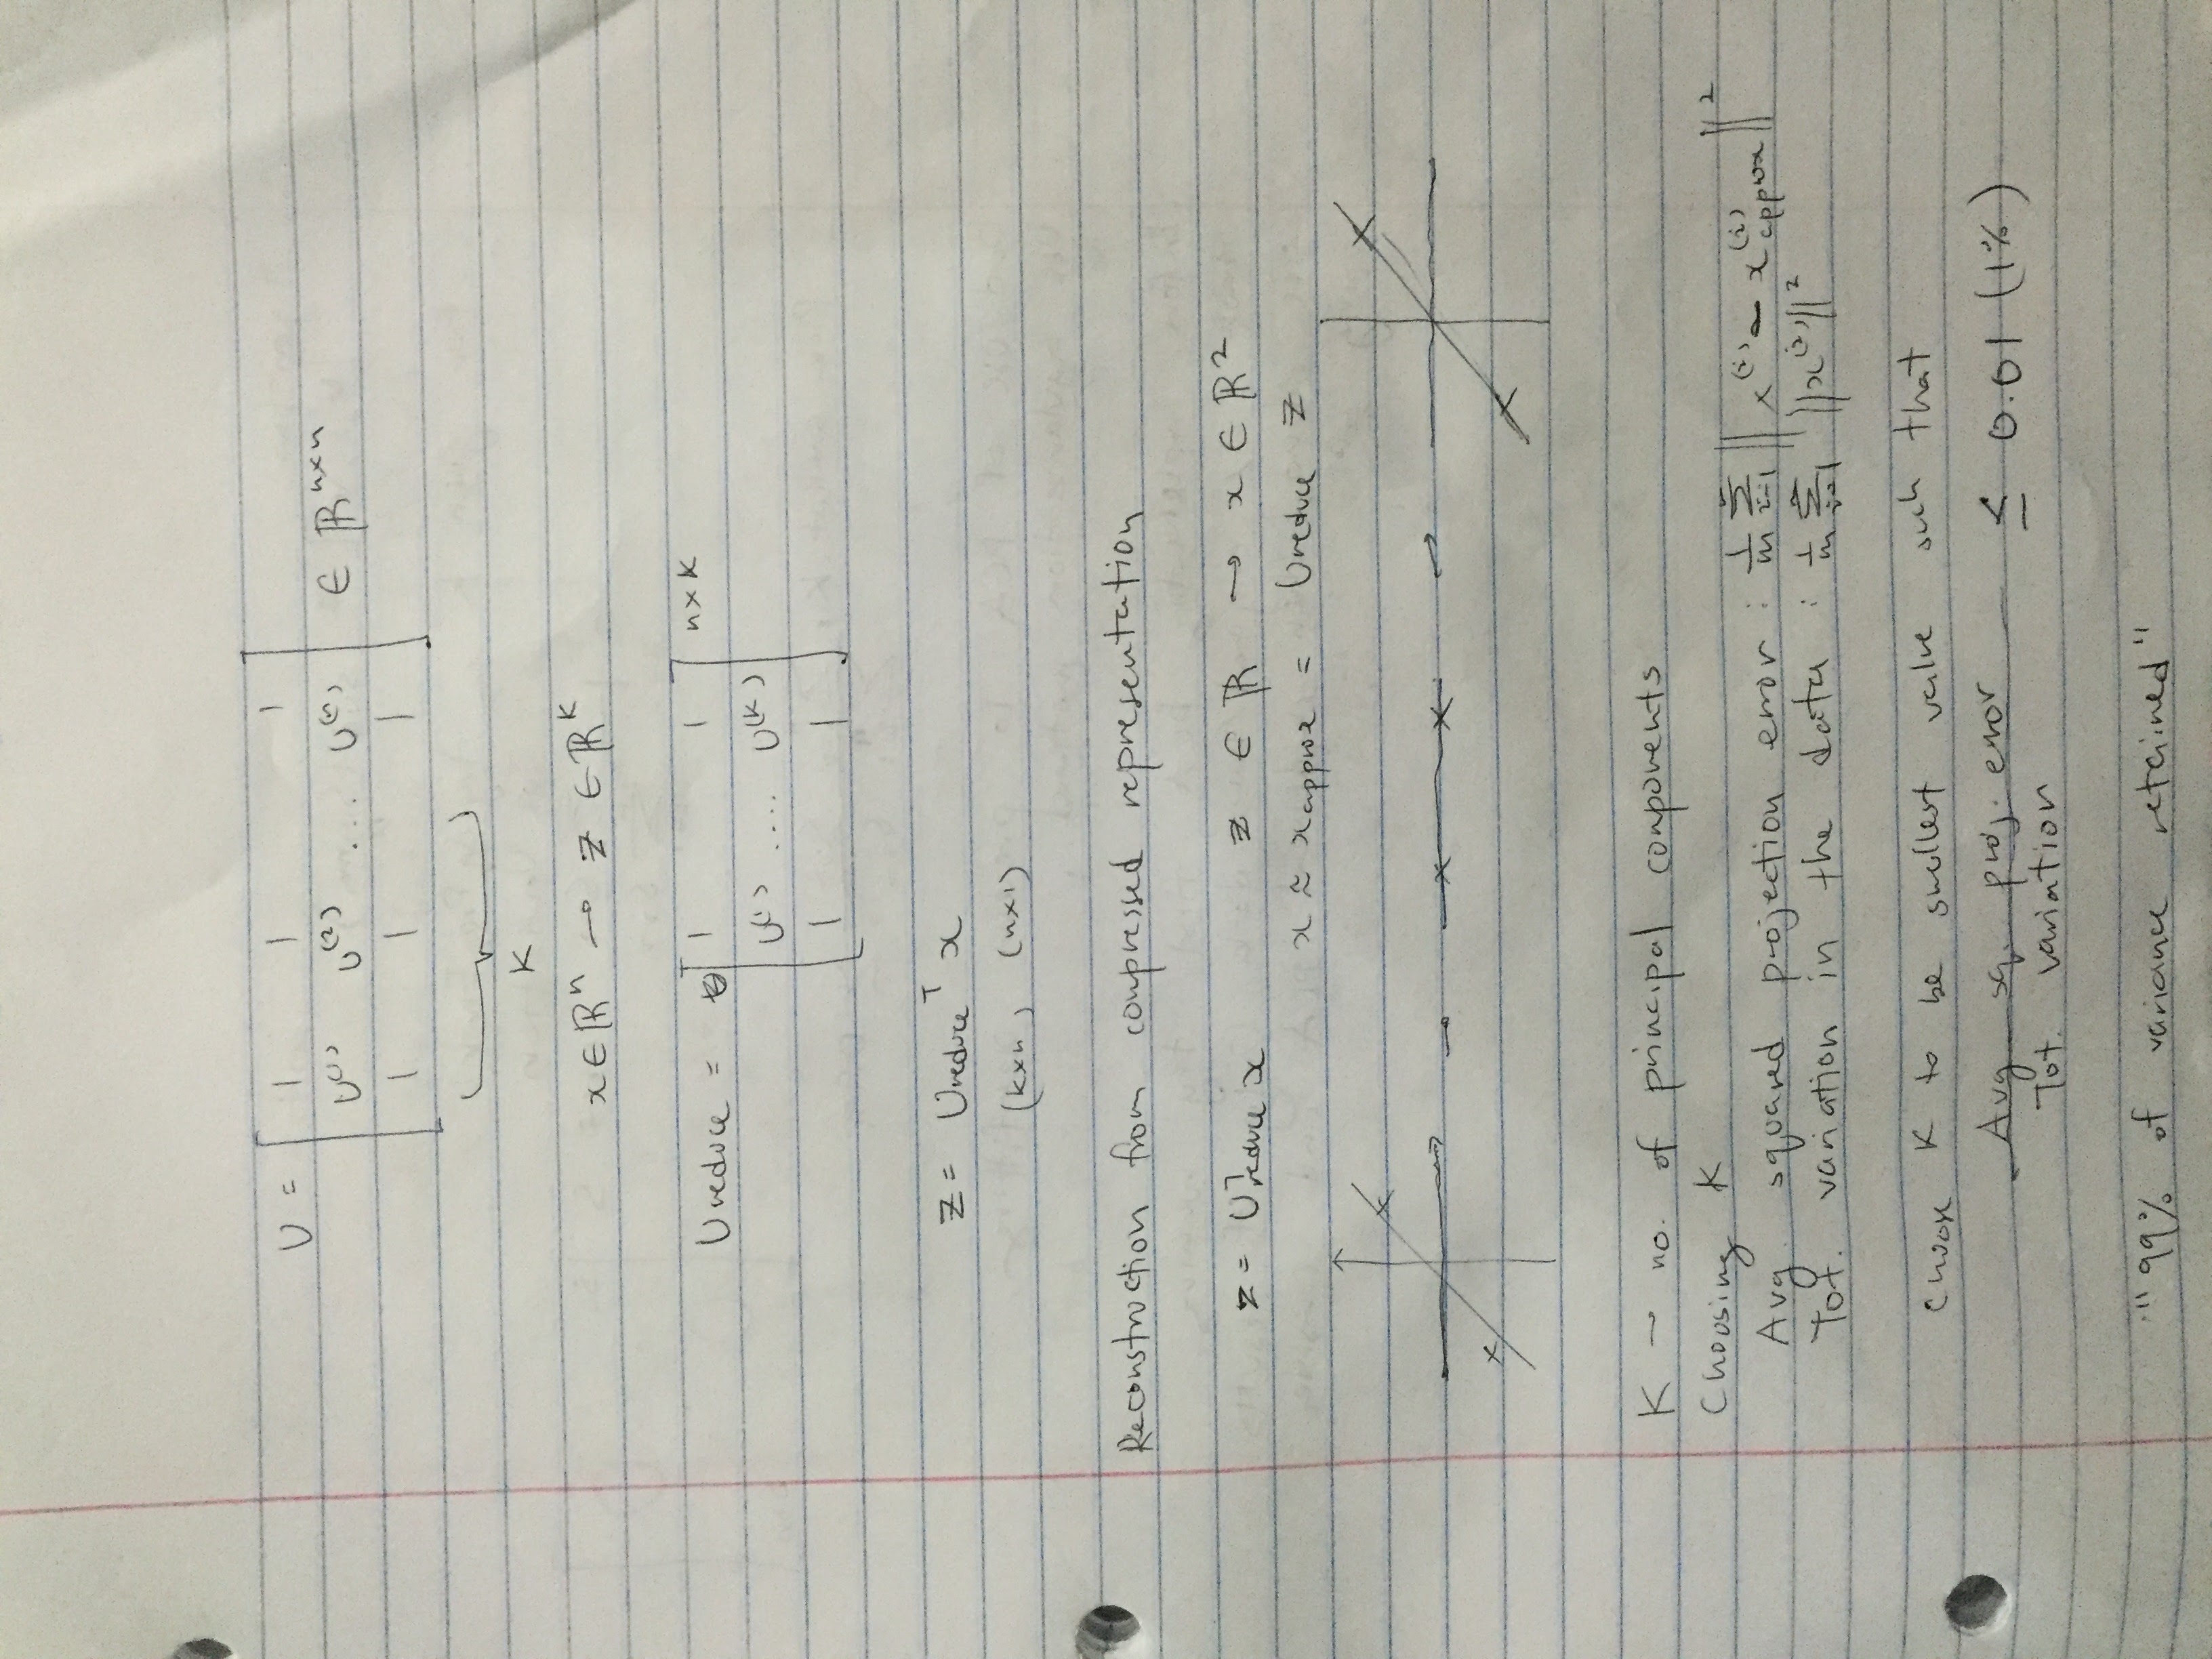 U = [ | | |
U⁽¹⁾ U⁽²⁾ ... U⁽ⁿ⁾ ] ∈ ℝⁿˣⁿ
| | |
K
x ∈ ℝⁿ → z ∈ ℝᵏ
Ureduce = [ | | ] n×k
U⁽¹⁾ .... U⁽ᵏ⁾
| |
z = Ureduceᵀ x
(k×n) (n×1)
Reconstruction from compressed representation
z = Uᵀreduce x z ∈ ℝ → x ∈ ℝ²
x ≈ xapprox = Ureduce z
K → no. of principal components
Choosing K
Avg. squared projection error : 1/m Σᵢ₌₁ᵐ || x⁽ⁱ⁾ - x⁽ⁱ⁾approx ||²
Tot. variation in the data : 1/m Σᵢ₌₁ᵐ ||x⁽ⁱ⁾||²
choose K to be smallest value such that
Avg sq. proj. error ≤ 0.01 (1%)
Tot. variation
"99% of variance retained"